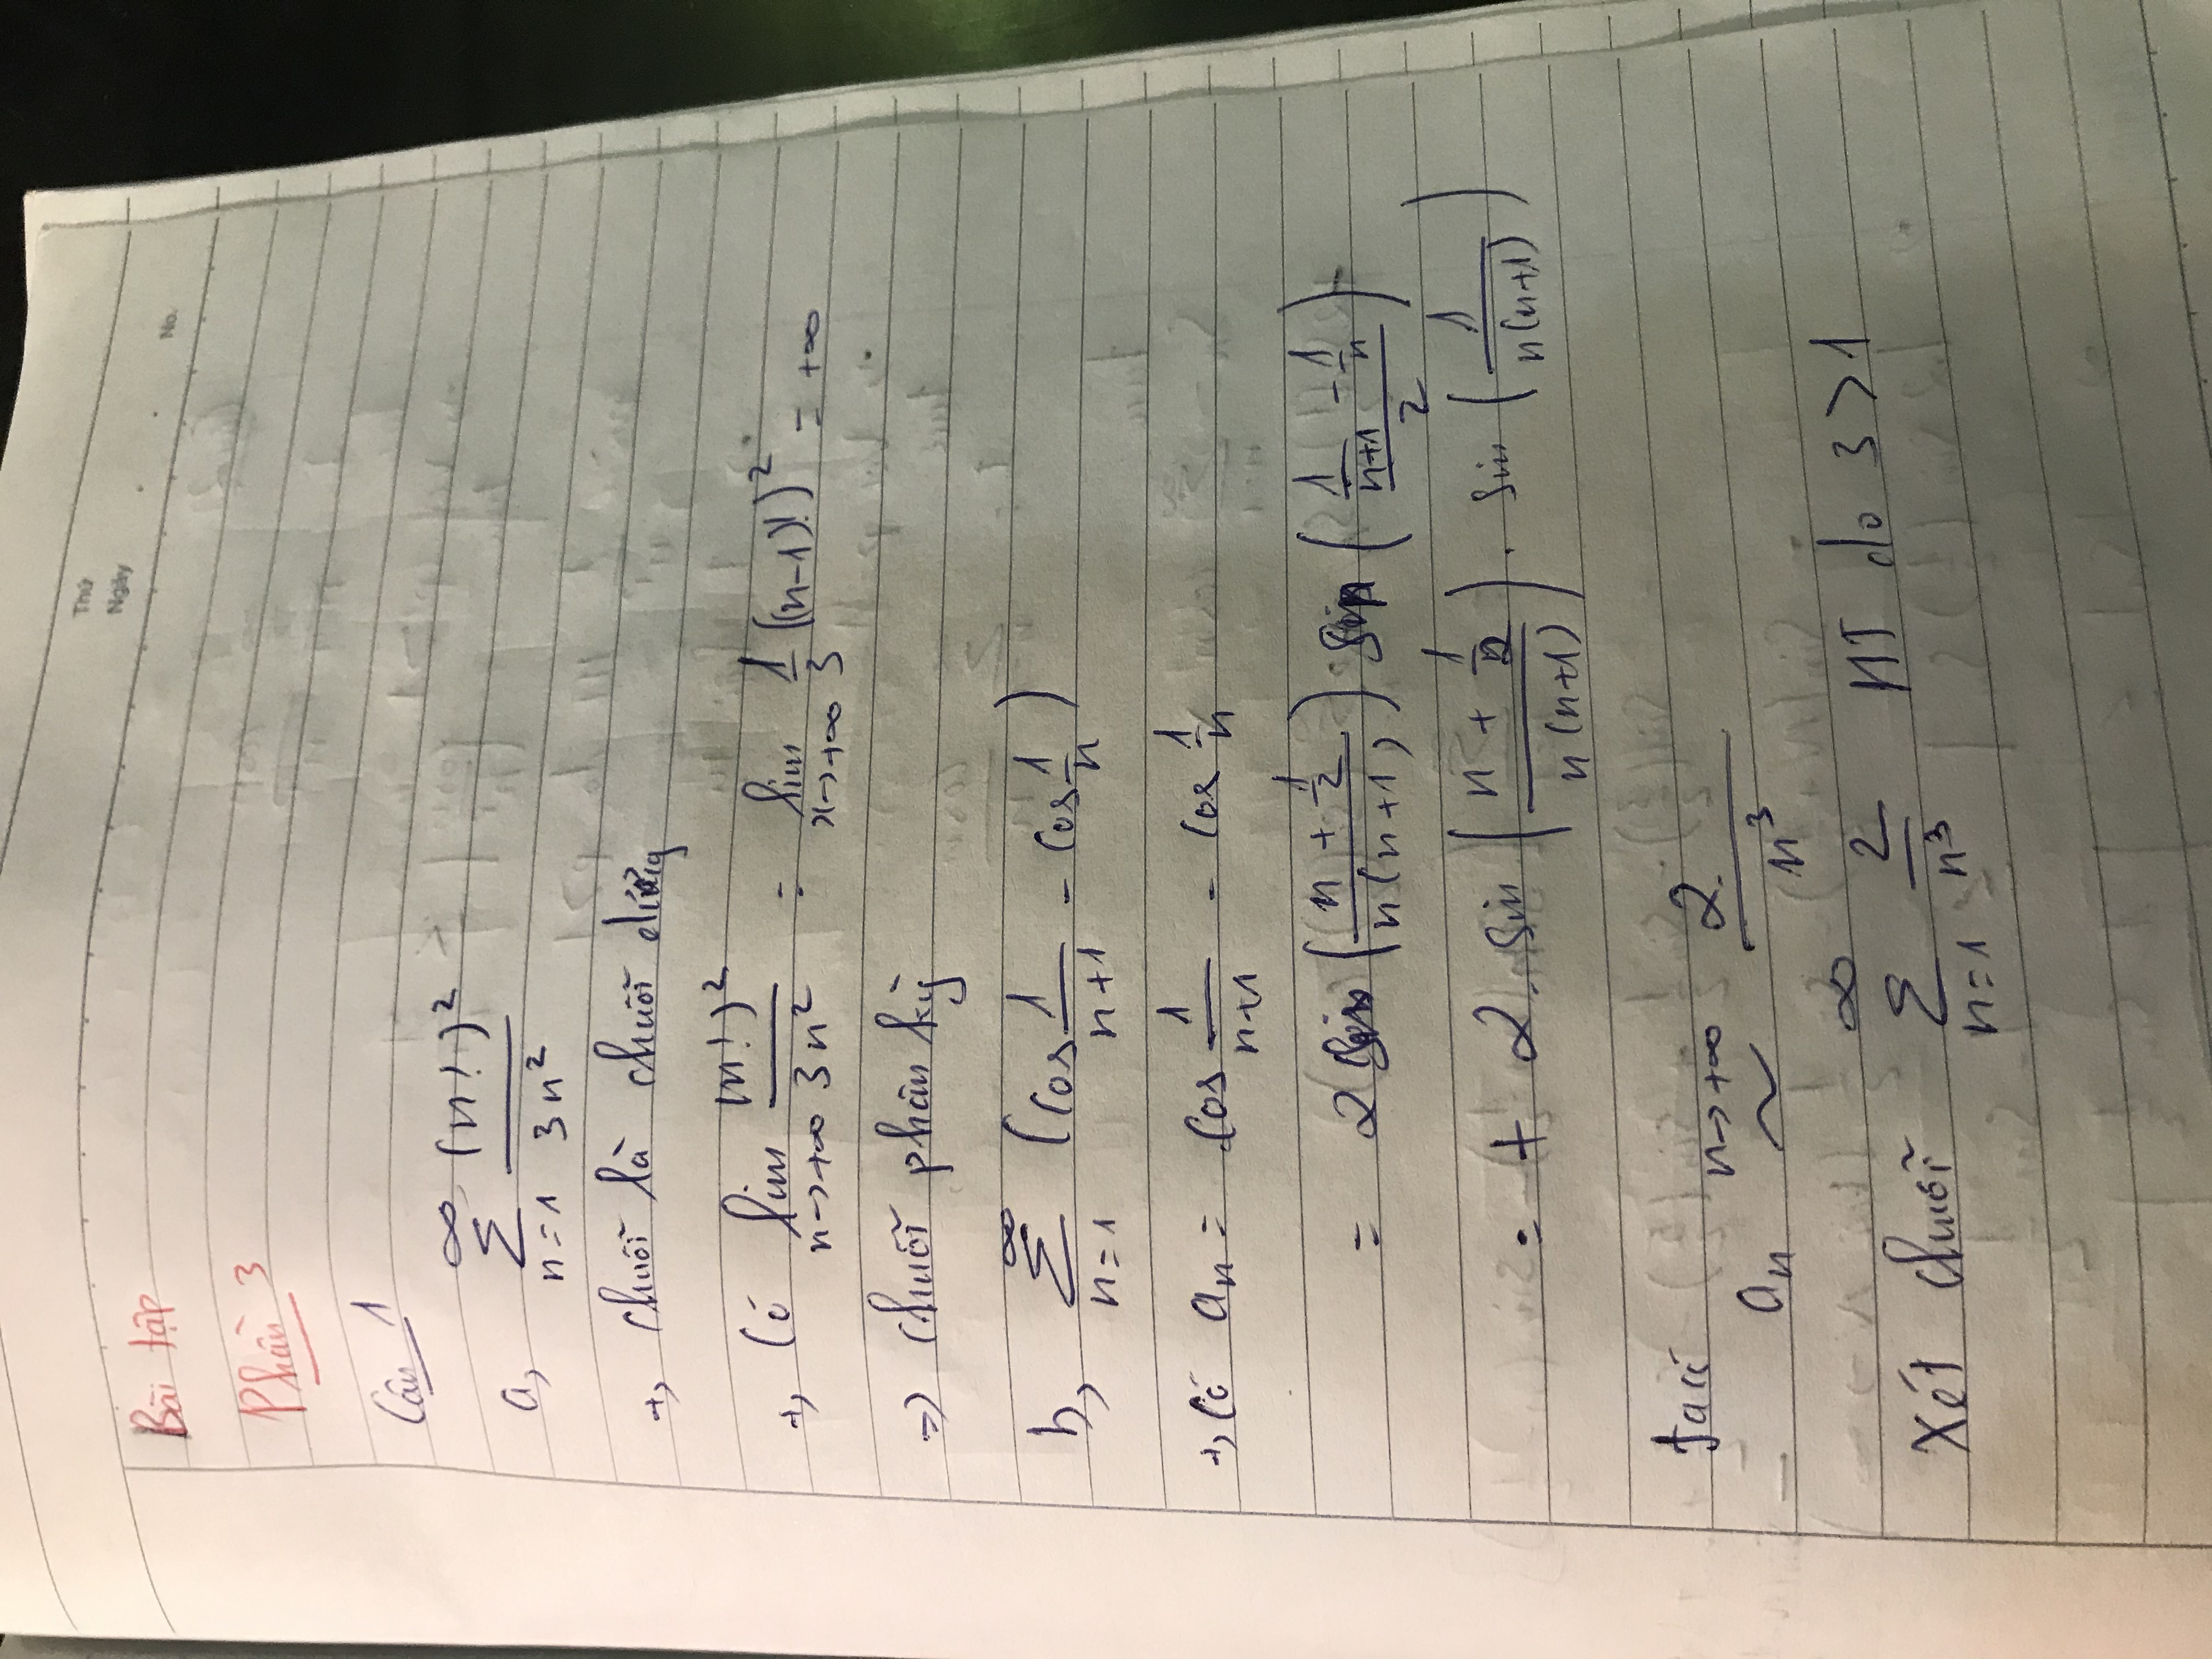 Thứ
Ngày
No.
Bài tập
Phần 3
Câu 1
a, ∑_{n=1}^{∞} (n!)² / 3n²
+, Chuỗi là chuỗi dương
+, Có lim_{n→+∞} (n!)² / 3n² = lim_{x→+∞} 1/3 ((n-1)!)² = +∞
=> Chuỗi phân kỳ
b, ∑_{n=1}^{∞} (cos 1/(n+1) - cos 1/n)
+, Có a_n = cos 1/(n+1) - cos 1/n
= 2 sin ((n + 1/2) / n(n+1)) sin ((1/(n+1) - 1/n) / 2)
= + 2. sin ((n + 1/2) / n(n+1)) . sin (1 / n(n+1))
ta có
a_n ~^{n→+∞} 2. / n³
Xét chuỗi ∑_{n=1}^{∞} 2/n³ HT do 3 > 1